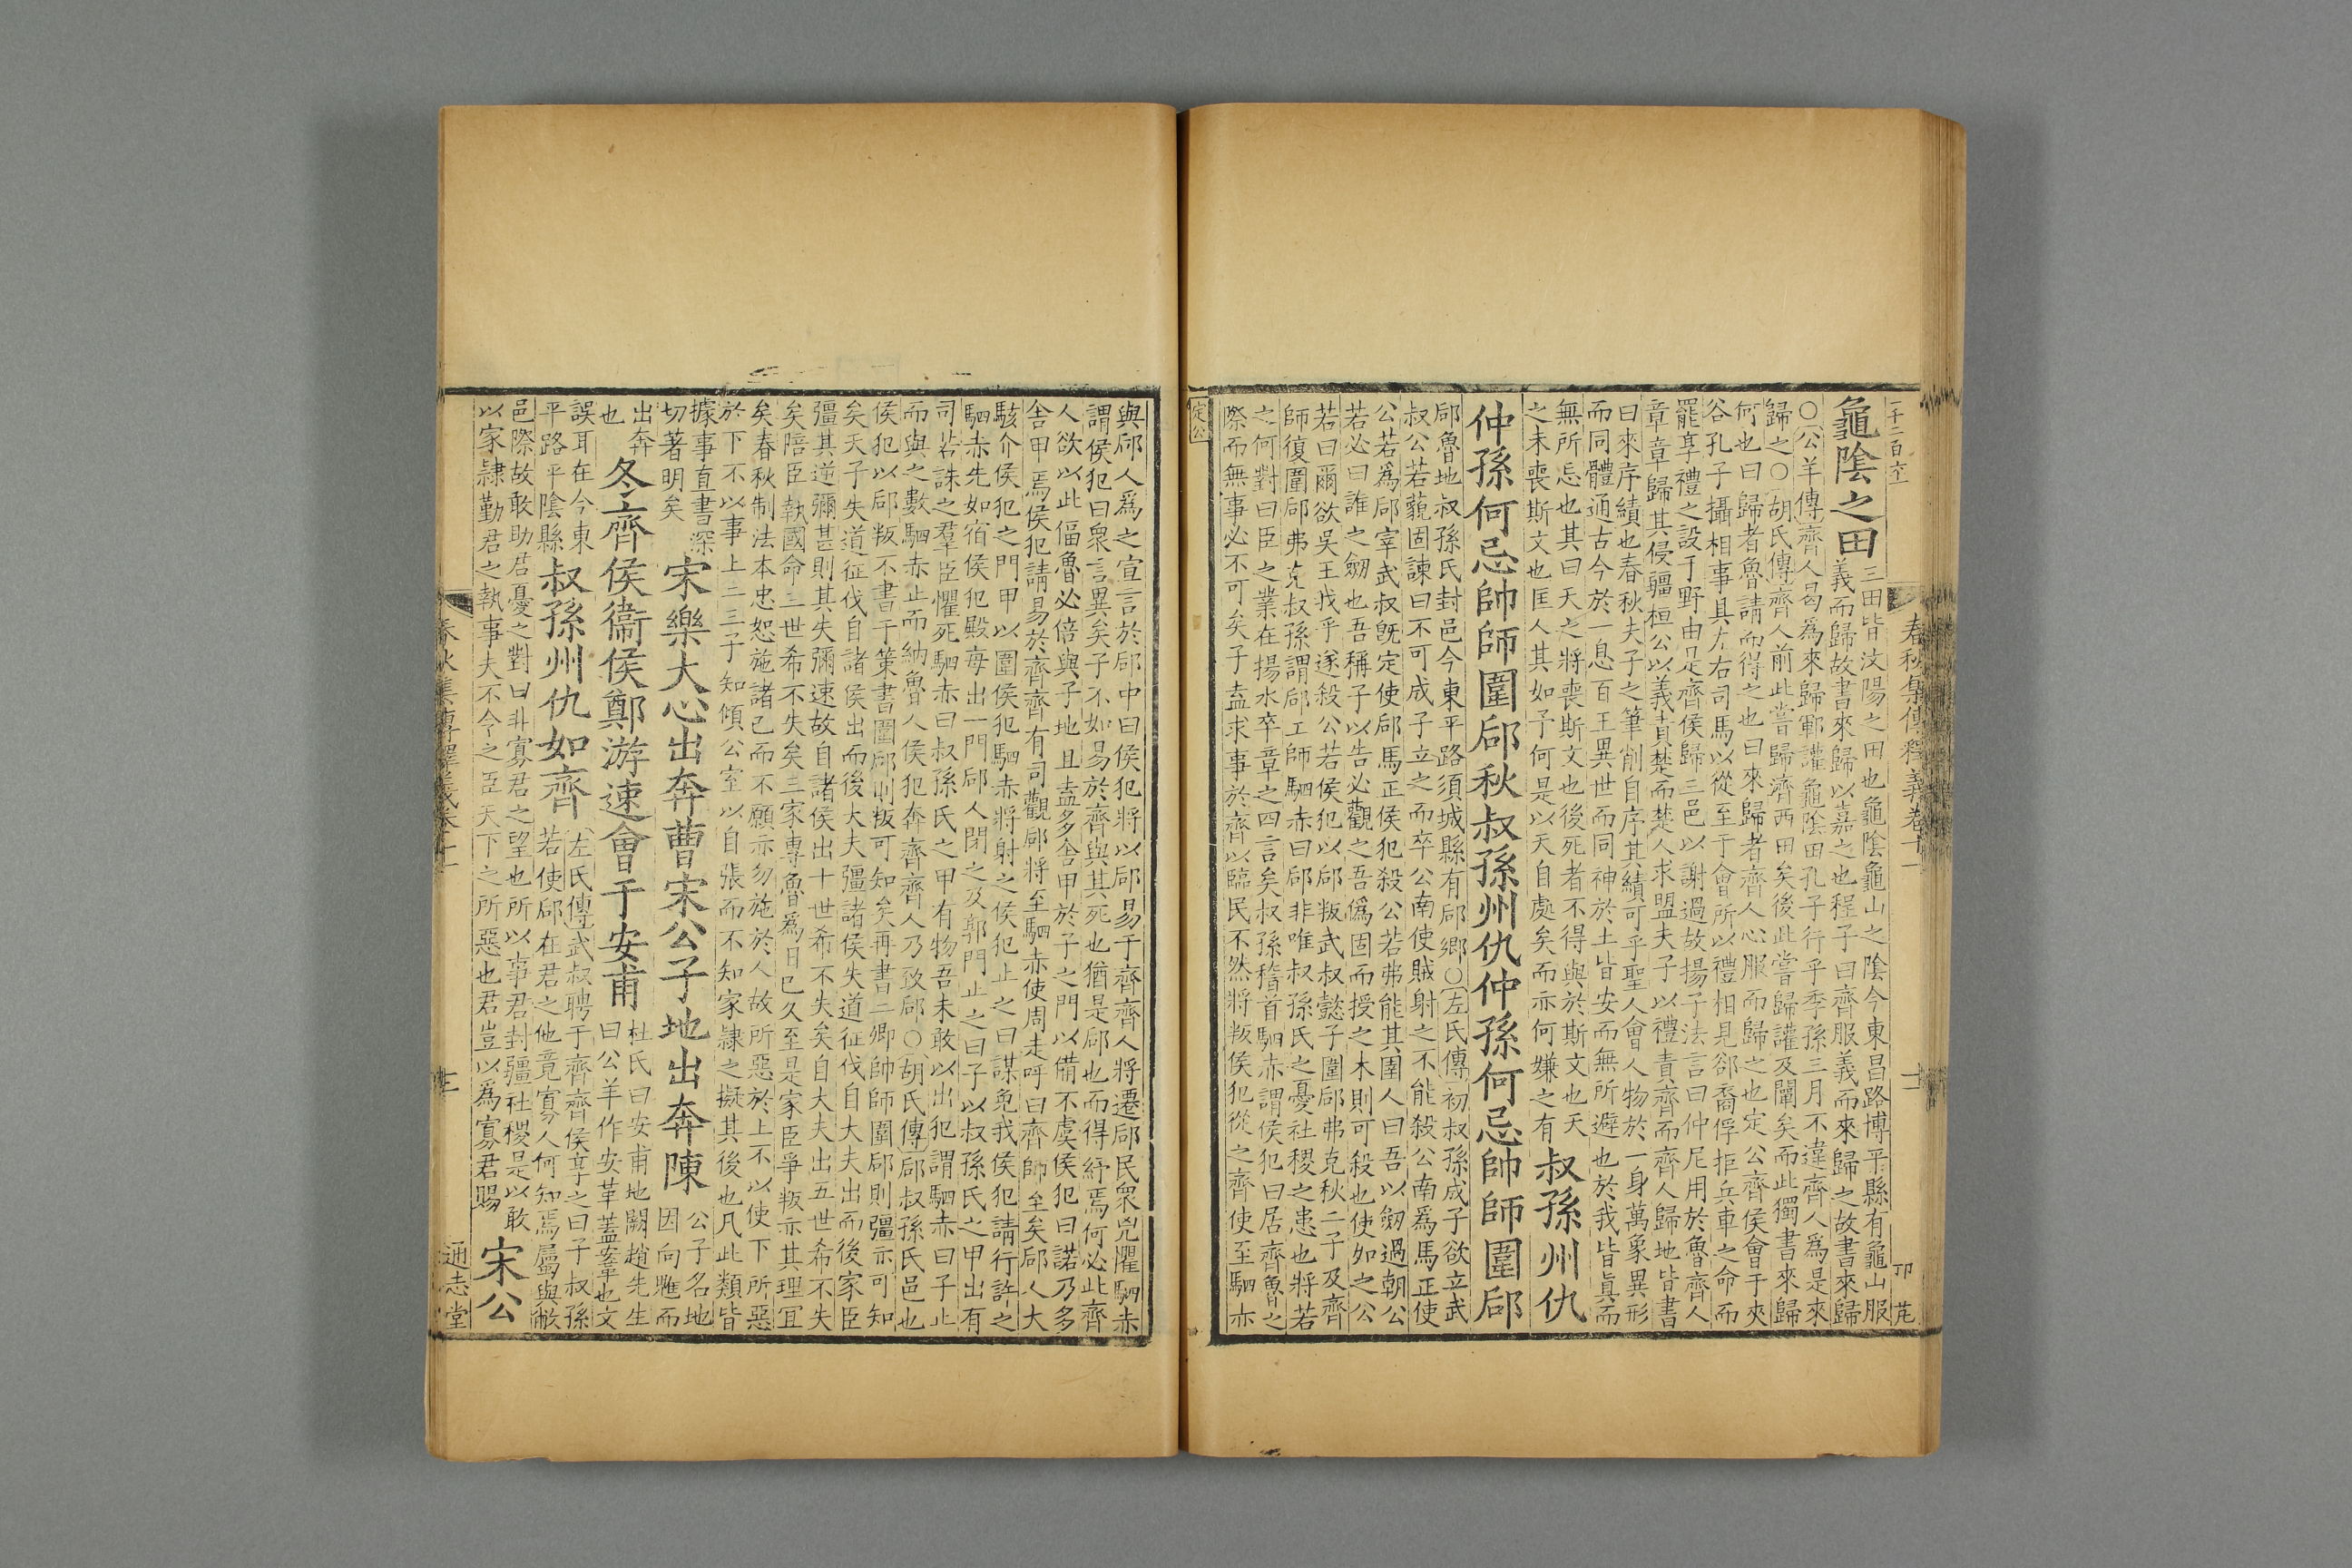 一千二百六十
春秋集傳釋義卷十一
龜陰之田
三田皆汶陽之田也龜陰龜山之陰今東昌路博平縣有龜山服
義而歸故書來歸以嘉之也程子曰齊服義而來歸之故書來歸
○公羊傳齊人曷爲來歸鄆讙龜陰田孔子行乎季孫三月不違齊人爲是來
歸之○胡氏傳齊人前此嘗歸濟西田矣後此嘗歸讙及闡矣而此獨書來歸
何也曰歸者魯請而得之也曰來歸者齊人心服而歸之也定公齊侯會于夾
谷孔子攝相事具左右司馬以從至于會所以禮相見郤裔俘拒兵車之命而
罷享禮之設于野由是齊侯歸三邑以謝過故揚子法言曰仲尼用於魯齊人
章章歸其侵疆桓公以義責楚而楚人求盟夫子以禮責齊而齊人歸地皆書
曰來序績也春秋夫子之筆削自序其績可乎聖人會人物於一身萬象異形
而同體通古今於一息百王異世而同神於土皆安而無所避也於我皆眞而
無所忘也其曰天之將喪斯文也後死者不得與於斯文也天
之未喪斯文也匡人其如予何是以天自處矣而亦何嫌之有
叔孫州仇
仲孫何忌帥師圍郈秋叔孫州仇仲孫何忌帥師圍郈
郈魯地叔孫氏封邑今東平路須城縣有郈鄉○左氏傳初叔孫成子欲立武
叔公若藐固諫曰不可成子立之而卒公南使賊射之不能殺公南爲馬正使
公若爲郈宰武叔既定使郈馬正侯犯殺公若弗能其圉人曰吾以劒過朝公
若必曰誰之劒也吾稱子以告必觀之吾僞固而授之末則可殺也使如之公
若曰爾欲吳王我乎遂殺公若侯犯以郈叛武叔懿子圍郈弗克秋二子及齊
師復圍郈弗克叔孫謂郈工師駟赤曰郈非唯叔孫氏之憂社稷之患也將若
之何對曰臣之業在揚水卒章之四言矣叔孫稽首駟赤謂侯犯曰居齊魯之
際而無事必不可矣子盍求事於齊以臨民不然將叛侯犯從之齊使至駟赤
定公
與郈人爲之宣言於郈中曰侯犯將以郈易于齊齊人將遷郈民衆兇懼駟赤
謂侯犯曰衆言異矣子不如易於齊與其死也猶是郈也而得紓焉何必此齊
人欲以此偪魯必倍與子地且盍多舍甲於子之門以備不虞侯犯曰諾乃多
舍甲焉侯犯請易於齊齊有司觀郈將至駟赤使周走呼曰齊師至矣郈人大
駭介侯犯之門甲以圍侯犯駟赤將射之侯犯止之曰謀免我侯犯請行許之
駟赤先如宿侯犯殿每出一門郈人閉之及郭門止之曰子以叔孫氏之甲出有
司若誅之羣臣懼死駟赤曰叔孫氏之甲有物吾未敢以出犯謂駟赤曰子止
而與之數駟赤止而納魯人侯犯奔齊齊人乃致郈○胡氏傳郈叔孫氏邑也
侯犯以郈叛不書于策書圍郈則叛可知矣再書二卿帥師圍郈則彊亦可知
矣天子失道征伐自諸侯出而後大夫彊諸侯失道征伐自大夫出而後家臣
彊其逆彌甚則其失彌速故自諸侯出十世希不失矣自大夫出五世希不失
矣陪臣執國命三世希不失矣三家專魯爲日已久至是家臣爭叛亦其理宜
矣春秋制法本忠恕施諸己而不願亦勿施於人故所惡於上不以使下所惡
於下不以事上二三子知傾公室以自張而不知家隷之擬其後也凡此類皆
據事直書深
切著明矣
宋樂大心出奔曹宋公子地出奔陳
公子名地
因向魋而
出奔
也
冬齊侯衞侯鄭游速會于安甫
杜氏曰安甫地闕趙先生
曰公羊作安革蓋鞌也文
誤耳在今東
平路平陰縣
叔孫州仇如齊
左氏傳武叔聘于齊齊侯享之曰子叔孫
若使郈在君之他竟寡人何知焉屬與敝
邑際故敢助君憂之對曰非寡君之望也所以事君封疆社稷是以敢
以家隷勤君之執事夫不令之臣天下之所惡也君豈以爲寡君賜
宋公
春秋集傳釋義卷十一
通志堂